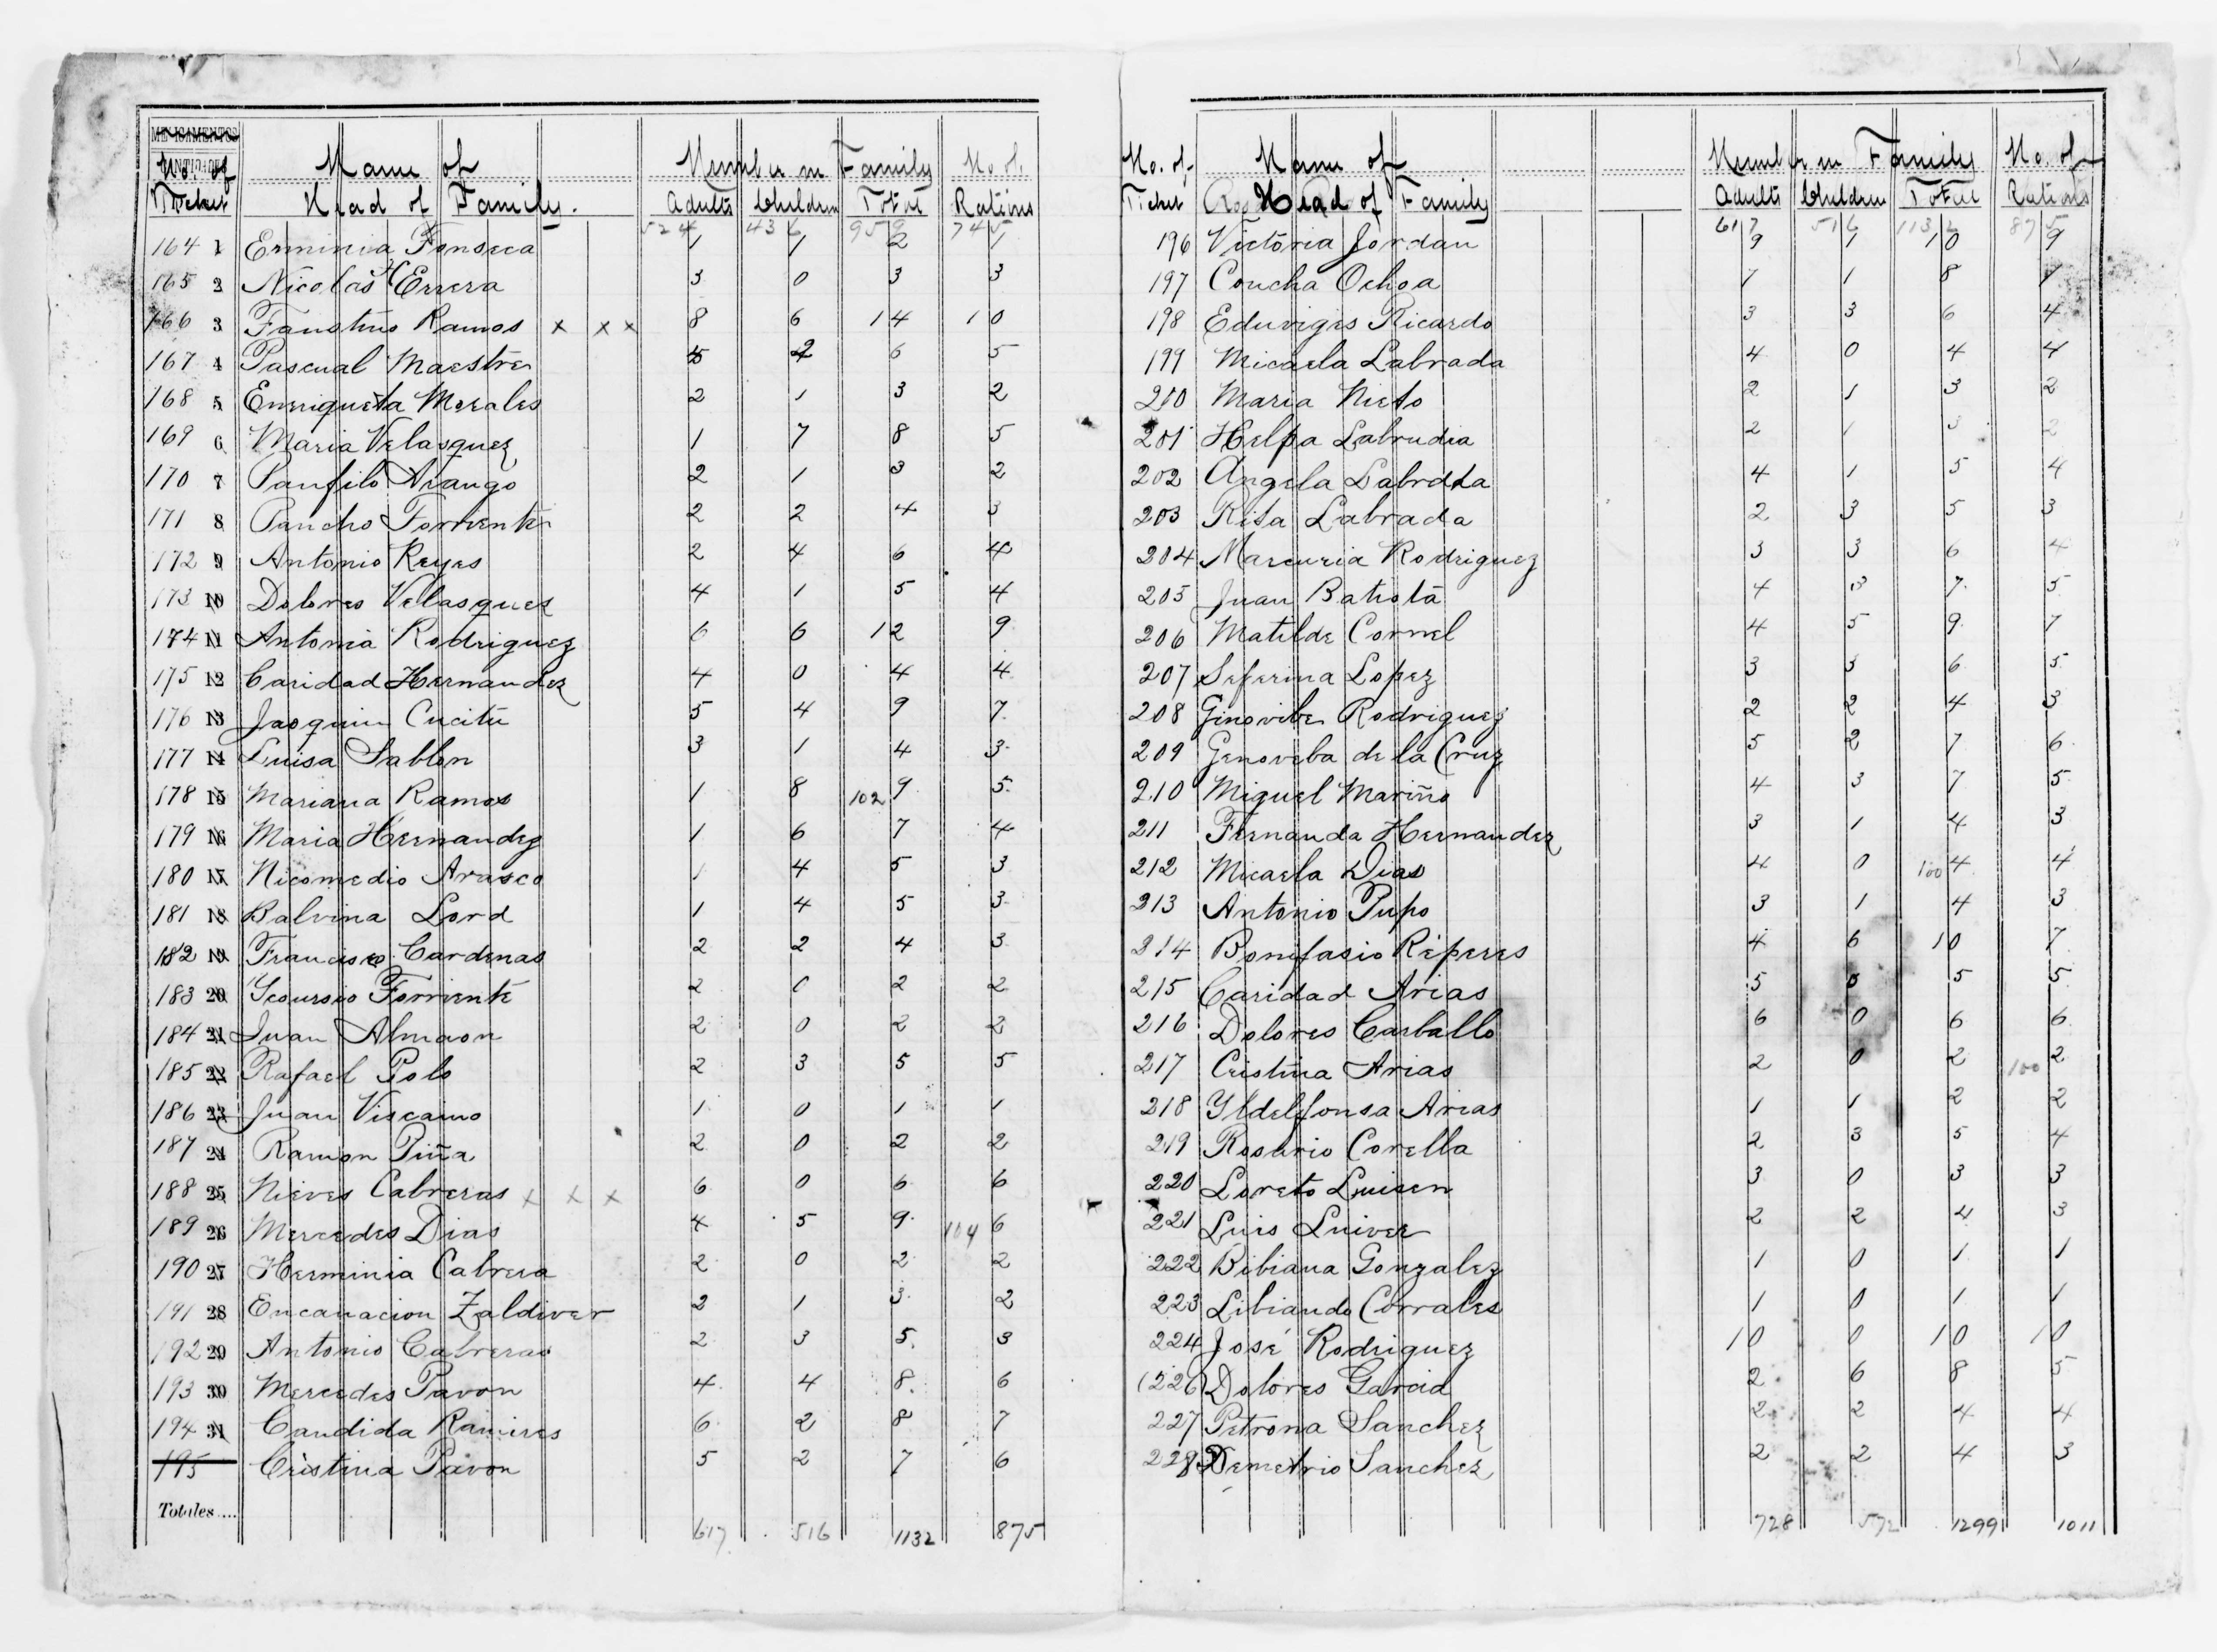 MEDICAMENTOS
No. of Name of Number in Family No. of
Ticket Head of Family. Adults Children Total Rations
524 436 959 745
164 1 Erminia Fonseca 1 1 2 1
165 2 Nicolas Errera 3 0 3 3
166 3 Faustino Ramos x x x 8 6 14 10
167 4 Pascual Maestre 2 6 5
168 5 Eneriqueta Morales 2 1 3 2
169 6 Maria Velasquez 1 7 8 5
170 7 Panfilo Arango 2 1 3 2
171 8 Pancho Forriente 2 2 4 3
172 9 Antonio Reyes 2 4 6 4
173 10 Dolores Velasquez 4 1 5 4
174 11 Antonia Rodriguez 6 6 12 9
175 12 Caridad Hernandez 4 0 4 4
176 13 Jaoquin Cucitu 5 4 9 7
177 14 Luisa Sablon 3 1 4 3
178 15 Mariana Ramos 1 8 102 9 5
179 16 Maria Hernandez 1 6 7 4
180 17 Nicomedio Arasco 1 4 5 3
181 18 Balvina Lord 1 4 5 3
182 19 Francisco Cardenas 2 2 4 3
183 20 Forriente 2 0 2 2
184 21 Juan Almaon 2 0 2 2
185 22 Rafael Polo 2 3 5 5
186 23 Juan Viscaino 1 0 1 1
187 24 Ramon Piña 2 0 2 2
188 25 Nieves Cabreras x x x 6 0 6 6
189 26 Mercedes Dias 4 5 9 104 6
190 27 Herminia Cabrera 2 0 2 2
191 28 Encanacion Zaldiver 2 1 3 2
192 29 Antonio Cabreras 2 3 5 3
193 30 Mercedes Pavon 4 4 8 6
194 31 Candida Ramires 6 2 8 7
195 Cristina Pavon 5 2 7 6
Totales.... 617 516 1132 875
No. of Name of Number in Family No. of
Ticket Head of Family Adults Children Total Rations
617 516 1132 875
196 Victoria Jordan 9 1 10 9
197 Concha Ochoa 7 1 8 7
198 Eduvigis Ricardo 3 3 6 4
199 Micaela Labrada 4 0 4 4
200 Maria Nieto 2 1 3 2
201 Helpa Labrudia 2 1 3 2
202 Angela Labrada 4 1 5 4
203 Rita Labrada 2 3 5 3
204 Marcuria Rodriguez 3 3 6 4
205 Juan Batista 4 3 7 5
206 Matilde Cornel 4 5 9 7
207 Seferina Lopez 3 3 6 5
208 Ginovibe Rodriguez 2 2 4 3
209 Genoveba de la Cruz 5 2 7 6
210 Miguel Mariño 4 3 7 5
211 Fernanda Hernandez 3 1 4 3
212 Micaela Dias 4 0 100 4 4
213 Antonio Pupo 3 1 4 3
214 Bonifasio Réperes 4 6 10 7
215 Caridad Arias 5 0 5 5
216 Dolores Carballo 6 0 6 6
217 Cristina Arias 2 0 2 100 2
218 Yldelfonsa Arias 1 1 2 2
219 Rosario Corella 2 3 5 4
220 Loreto Luisen 3 0 3 3
221 Luis Luiver 2 2 4 3
222 Bibiana Gonzalez 1 0 1 1
223 Libiando Corrales 1 0 1 1
224 José Rodriguez 10 0 10 10
226 Dolores Garcia 2 6 8 5
227 Petrona Sanchez 2 2 4 4
228 Demetrio Sanchez 2 2 4 3
728 572 1299 1011